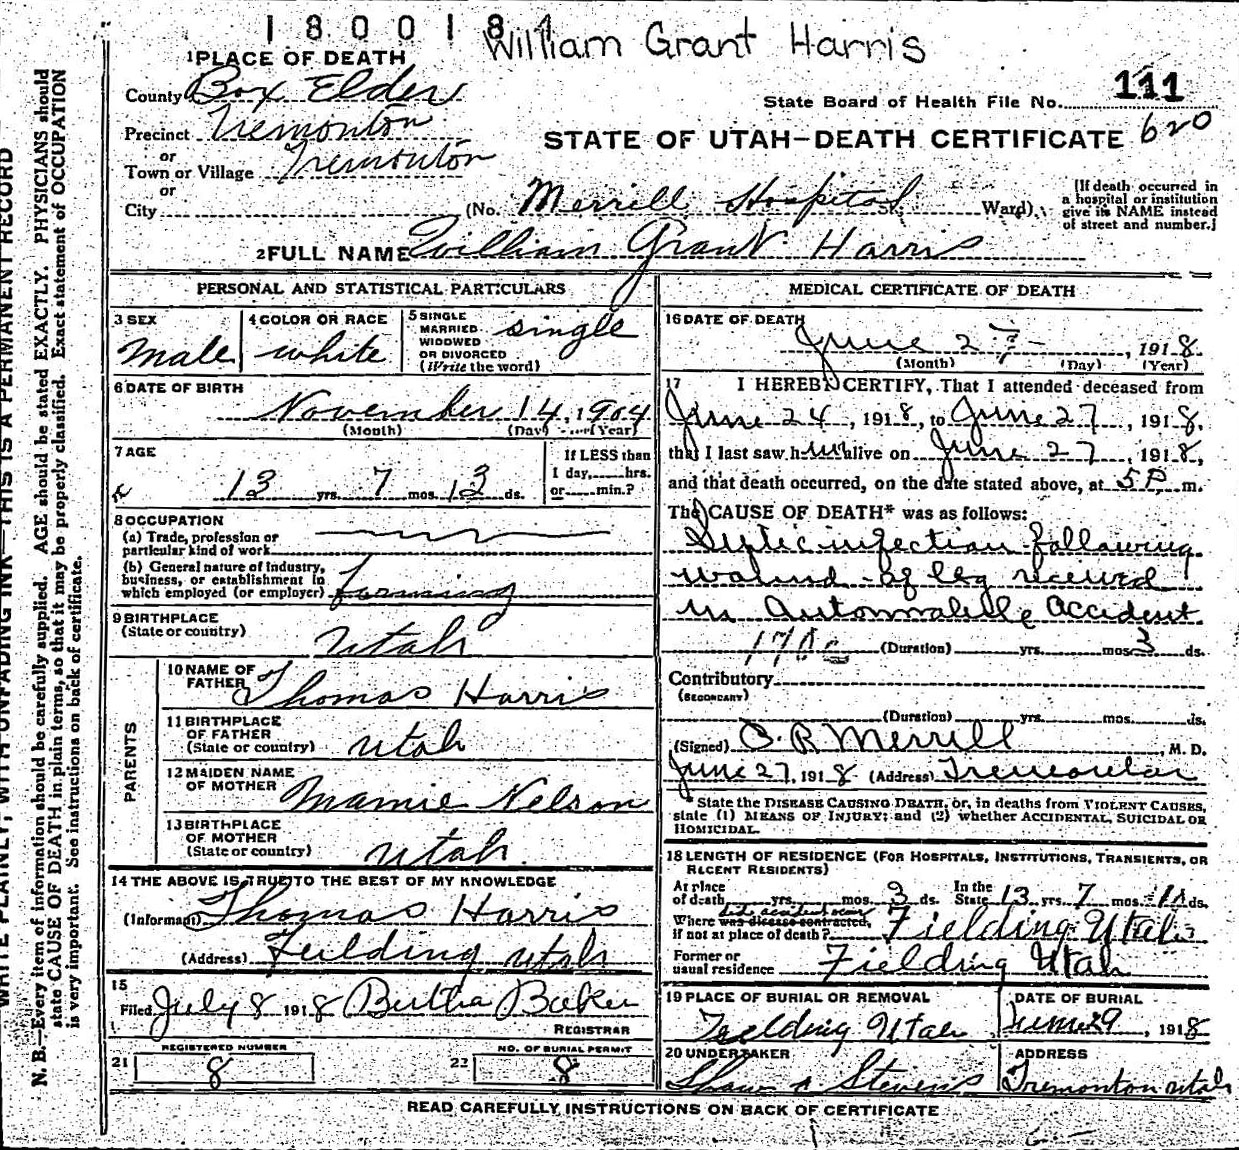 1800184
William Grant Harris
1 PLACE OF DEATH
County Box Elder
State Board of Health File No. 111
Precinct Tremonton
STATE OF UTAH—DEATH CERTIFICATE 620
or
Town or Village Tremonton
or
City (No. Merrill Hospital St. Ward)
(If death occurred in
a hospital or institution
give its NAME instead
of street and number.)
2 FULL NAME William Grant Harris
PERSONAL AND STATISTICAL PARTICULARS
3 SEX
Male
4 COLOR OR RACE
white
5 SINGLE
MARRIED
WIDOWED
OR DIVORCED
(Write the word)
single
6 DATE OF BIRTH
November 14, 1904
(Month) (Day) (Year)
7 AGE
13 yrs. 7 mos. 13 ds.
If LESS than
1 day, hrs.
or min.?
8 OCCUPATION
(a) Trade, profession or
particular kind of work
(b) General nature of industry,
business, or establishment in
which employed (or employer) farming
9 BIRTHPLACE
(State or country) Utah
PARENTS
10 NAME OF
FATHER Thomas Harris
11 BIRTHPLACE
OF FATHER
(State or country) Utah
12 MAIDEN NAME
OF MOTHER Mamie Nelson
13 BIRTHPLACE
OF MOTHER
(State or country) Utah
14 THE ABOVE IS TRUE TO THE BEST OF MY KNOWLEDGE
(Informant) Thomas Harris
(Address) Feilding Utah
15
Filed July 8 1918 Bertha Baker
REGISTRAR
REGISTERED NUMBER
21 8
NO. OF BURIAL PERMIT
22 8
MEDICAL CERTIFICATE OF DEATH
16 DATE OF DEATH
June 27, 1918.
(Month) (Day) (Year)
17 I HEREBY CERTIFY, That I attended deceased from
June 24, 1918, to June 27, 1918.
that I last saw him alive on June 27, 1918,
and that death occurred, on the date stated above, at 5 P. m.
The CAUSE OF DEATH* was as follows:
Septic infection following
wound of leg received
in Automobile Accident
(Duration) yrs. mos. 3 ds.
Contributory
(SECONDARY)
(Duration) yrs. mos. ds.
(Signed) Merrill, M. D.
June 27, 1918 (Address) Tremonton
*State the DISEASE CAUSING DEATH, or, in deaths from VIOLENT CAUSES,
state (1) MEANS OF INJURY; and (2) whether ACCIDENTAL, SUICIDAL OR
HOMICIDAL.
18 LENGTH OF RESIDENCE (FOR HOSPITALS, INSTITUTIONS, TRANSIENTS, OR
RECENT RESIDENTS)
At place
of death yrs. mos. 3 ds.
In the
State 13 yrs. 7 mos. ds.
did accident occur
Where was disease contracted,
if not at place of death? Fielding Utah
Former or
usual residence Fielding Utah
19 PLACE OF BURIAL OR REMOVAL
Fielding Utah
DATE OF BURIAL
June 29, 1918
20 UNDERTAKER
Stevens
ADDRESS
Tremonton Utah
READ CAREFULLY INSTRUCTIONS ON BACK OF CERTIFICATE
WRITE PLAINLY, WITH UNFADING INK—THIS IS A PERMANENT RECORD
N. B.—Every item of information should be carefully supplied. AGE should be stated EXACTLY. PHYSICIANS should
state CAUSE OF DEATH in plain terms, so that it may be properly classified. Exact statement of OCCUPATION
is very important. See instructions on back of certificate.